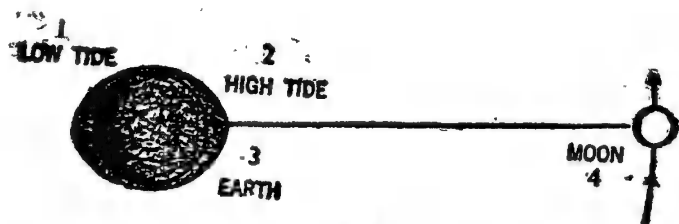 1
LOW TIDE
2
HIGH TIDE
3
EARTH
MOON
4